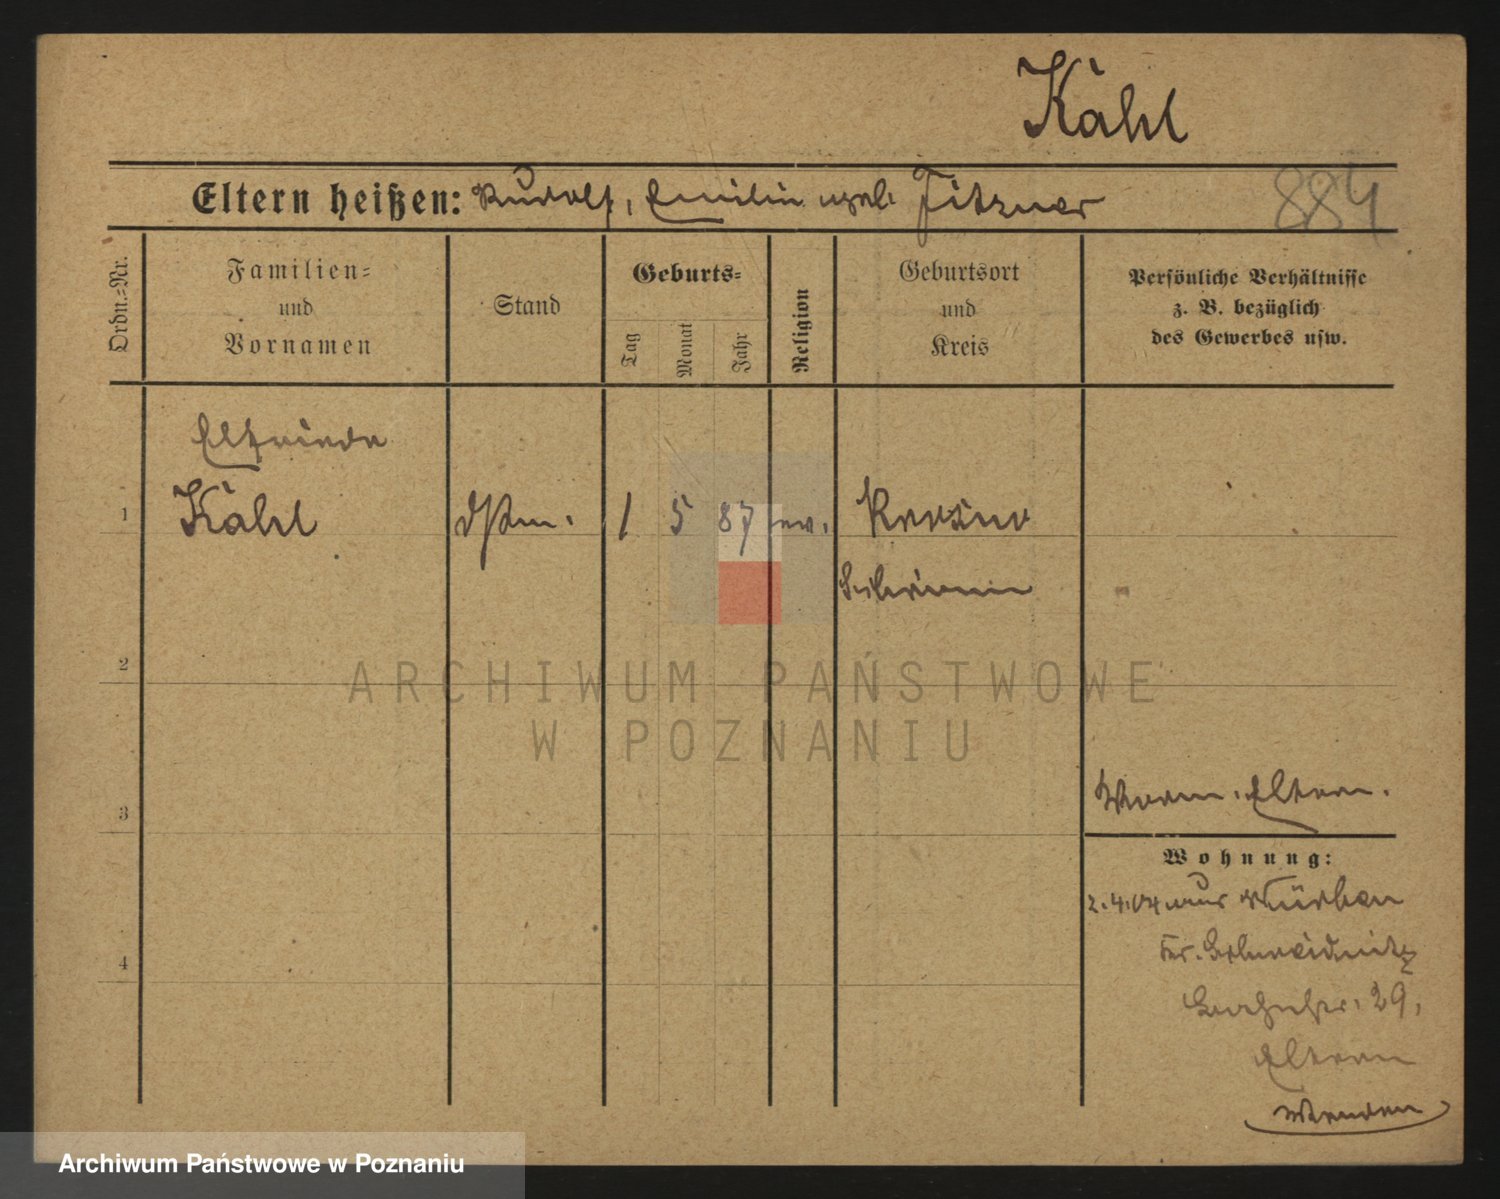 Kähl
Eltern heißen: Rudolf, Emilie geb. Fitzner
884
Ordn.-Nr.
Familien-
und
Vornamen
Stand
Geburts-
Tag
Monat
Jahr
Religion
Geburtsort
und
Kreis
Persönliche Verhältnisse
z. B. bezüglich
des Gewerbes usw.
Elfriede
1 Kähl 1 5 87 ev.
2
3
4
Eltern.
Wohnung:
2.4.04 Würben
Kr. Schweidnitz
29,
Eltern
Wenden
ARCHIWUM PAŃSTWOWE
W POZNANIU
Archiwum Państwowe w Poznaniu